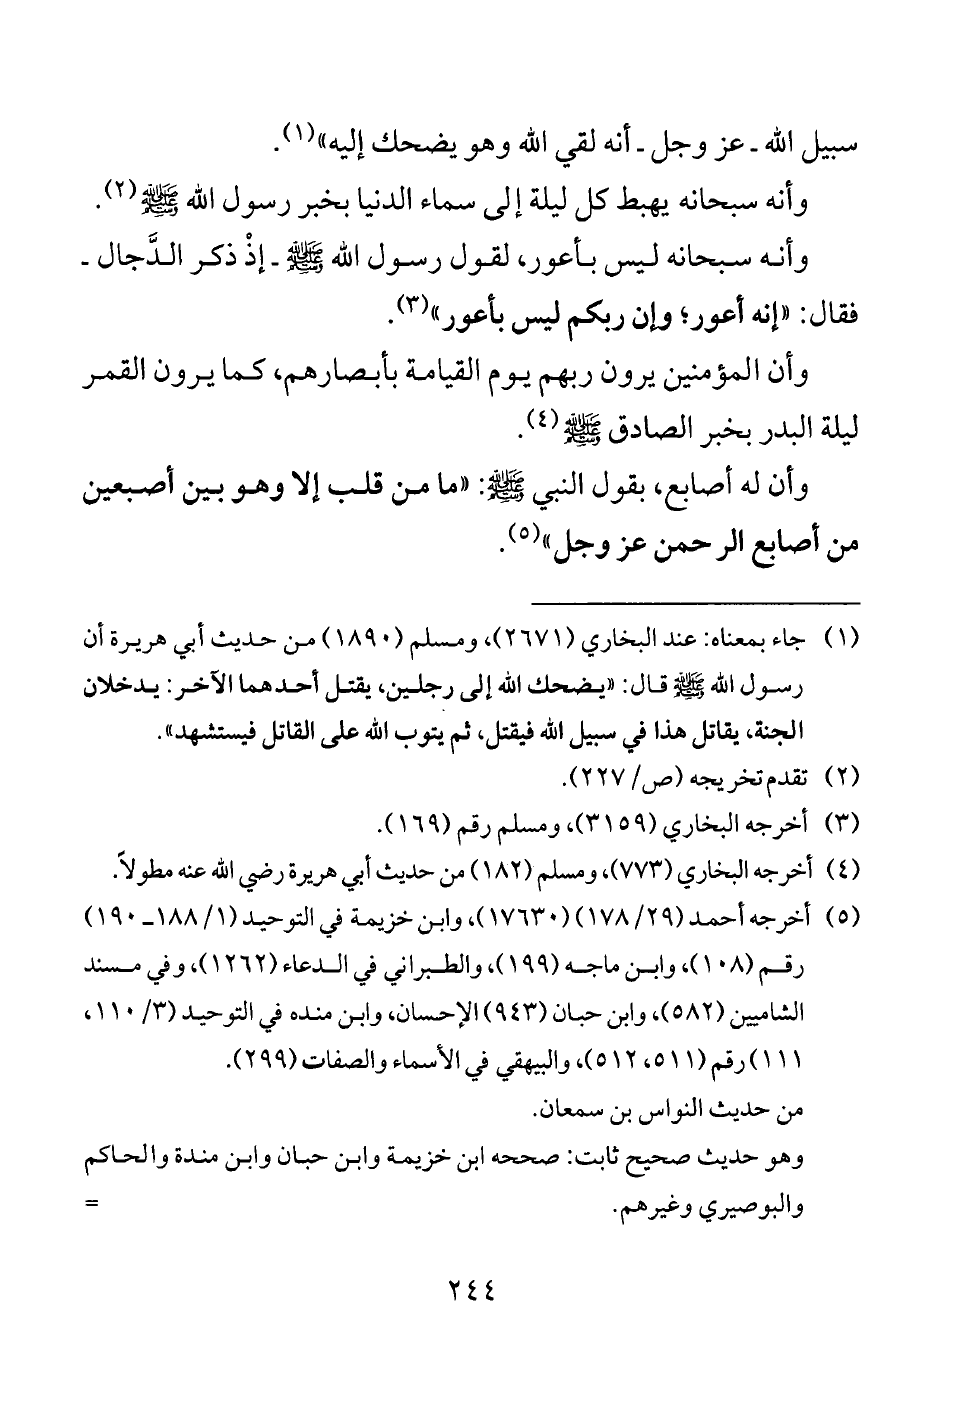 سبيل الله ـ عز وجل ـ أنه لقي الله وهو يضحك إليه»(١).
وأنه سبحانه يهبط كل ليلة إلى سماء الدنيا بخبر رسول الله ﷺ(٢).
وأنه سبحانه ليس بأعور، لقول رسول الله ﷺ ـ إذْ ذكر الدَّجال ـ
فقال: «إنه أعور؛ وإن ربكم ليس بأعور»(٣).
وأن المؤمنين يرون ربهم يوم القيامة بأبصارهم، كما يرون القمر
ليلة البدر بخبر الصادق ﷺ(٤).
وأن له أصابع، بقول النبي ﷺ: «ما من قلب إلا وهو بين أصبعين
من أصابع الرحمن عز وجل»(٥).
(١) جاء بمعناه: عند البخاري (٢٦٧١)، ومسلم (١٨٩٠) من حديث أبي هريرة أن
رسول الله ﷺ قال: «يضحك الله إلى رجلين، يقتل أحدهما الآخر: يدخلان
الجنة، يقاتل هذا في سبيل الله فيقتل، ثم يتوب الله على القاتل فيستشهد».
(٢) تقدم تخريجه (ص/ ٢٢٧).
(٣) أخرجه البخاري (٣١٥٩)، ومسلم رقم (١٦٩).
(٤) أخرجه البخاري (٧٧٣)، ومسلم (١٨٢) من حديث أبي هريرة رضي الله عنه مطولاً.
(٥) أخرجه أحمد (٢٩/ ١٧٨) (١٧٦٣٠)، وابن خزيمة في التوحيد (١/ ١٨٨ـ ١٩٠)
رقم (١٠٨)، وابن ماجه (١٩٩)، والطبراني في الدعاء (١٢٦٢)، وفي مسند
الشاميين (٥٨٢)، وابن حبان (٩٤٣) الإحسان، وابن منده في التوحيد (٣/ ١١٠،
١١١) رقم (٥١١، ٥١٢)، والبيهقي في الأسماء والصفات (٢٩٩).
من حديث النواس بن سمعان.
وهو حديث صحيح ثابت: صححه ابن خزيمة وابن حبان وابن مندة والحاكم
والبوصيري وغيرهم. =
٢٤٤